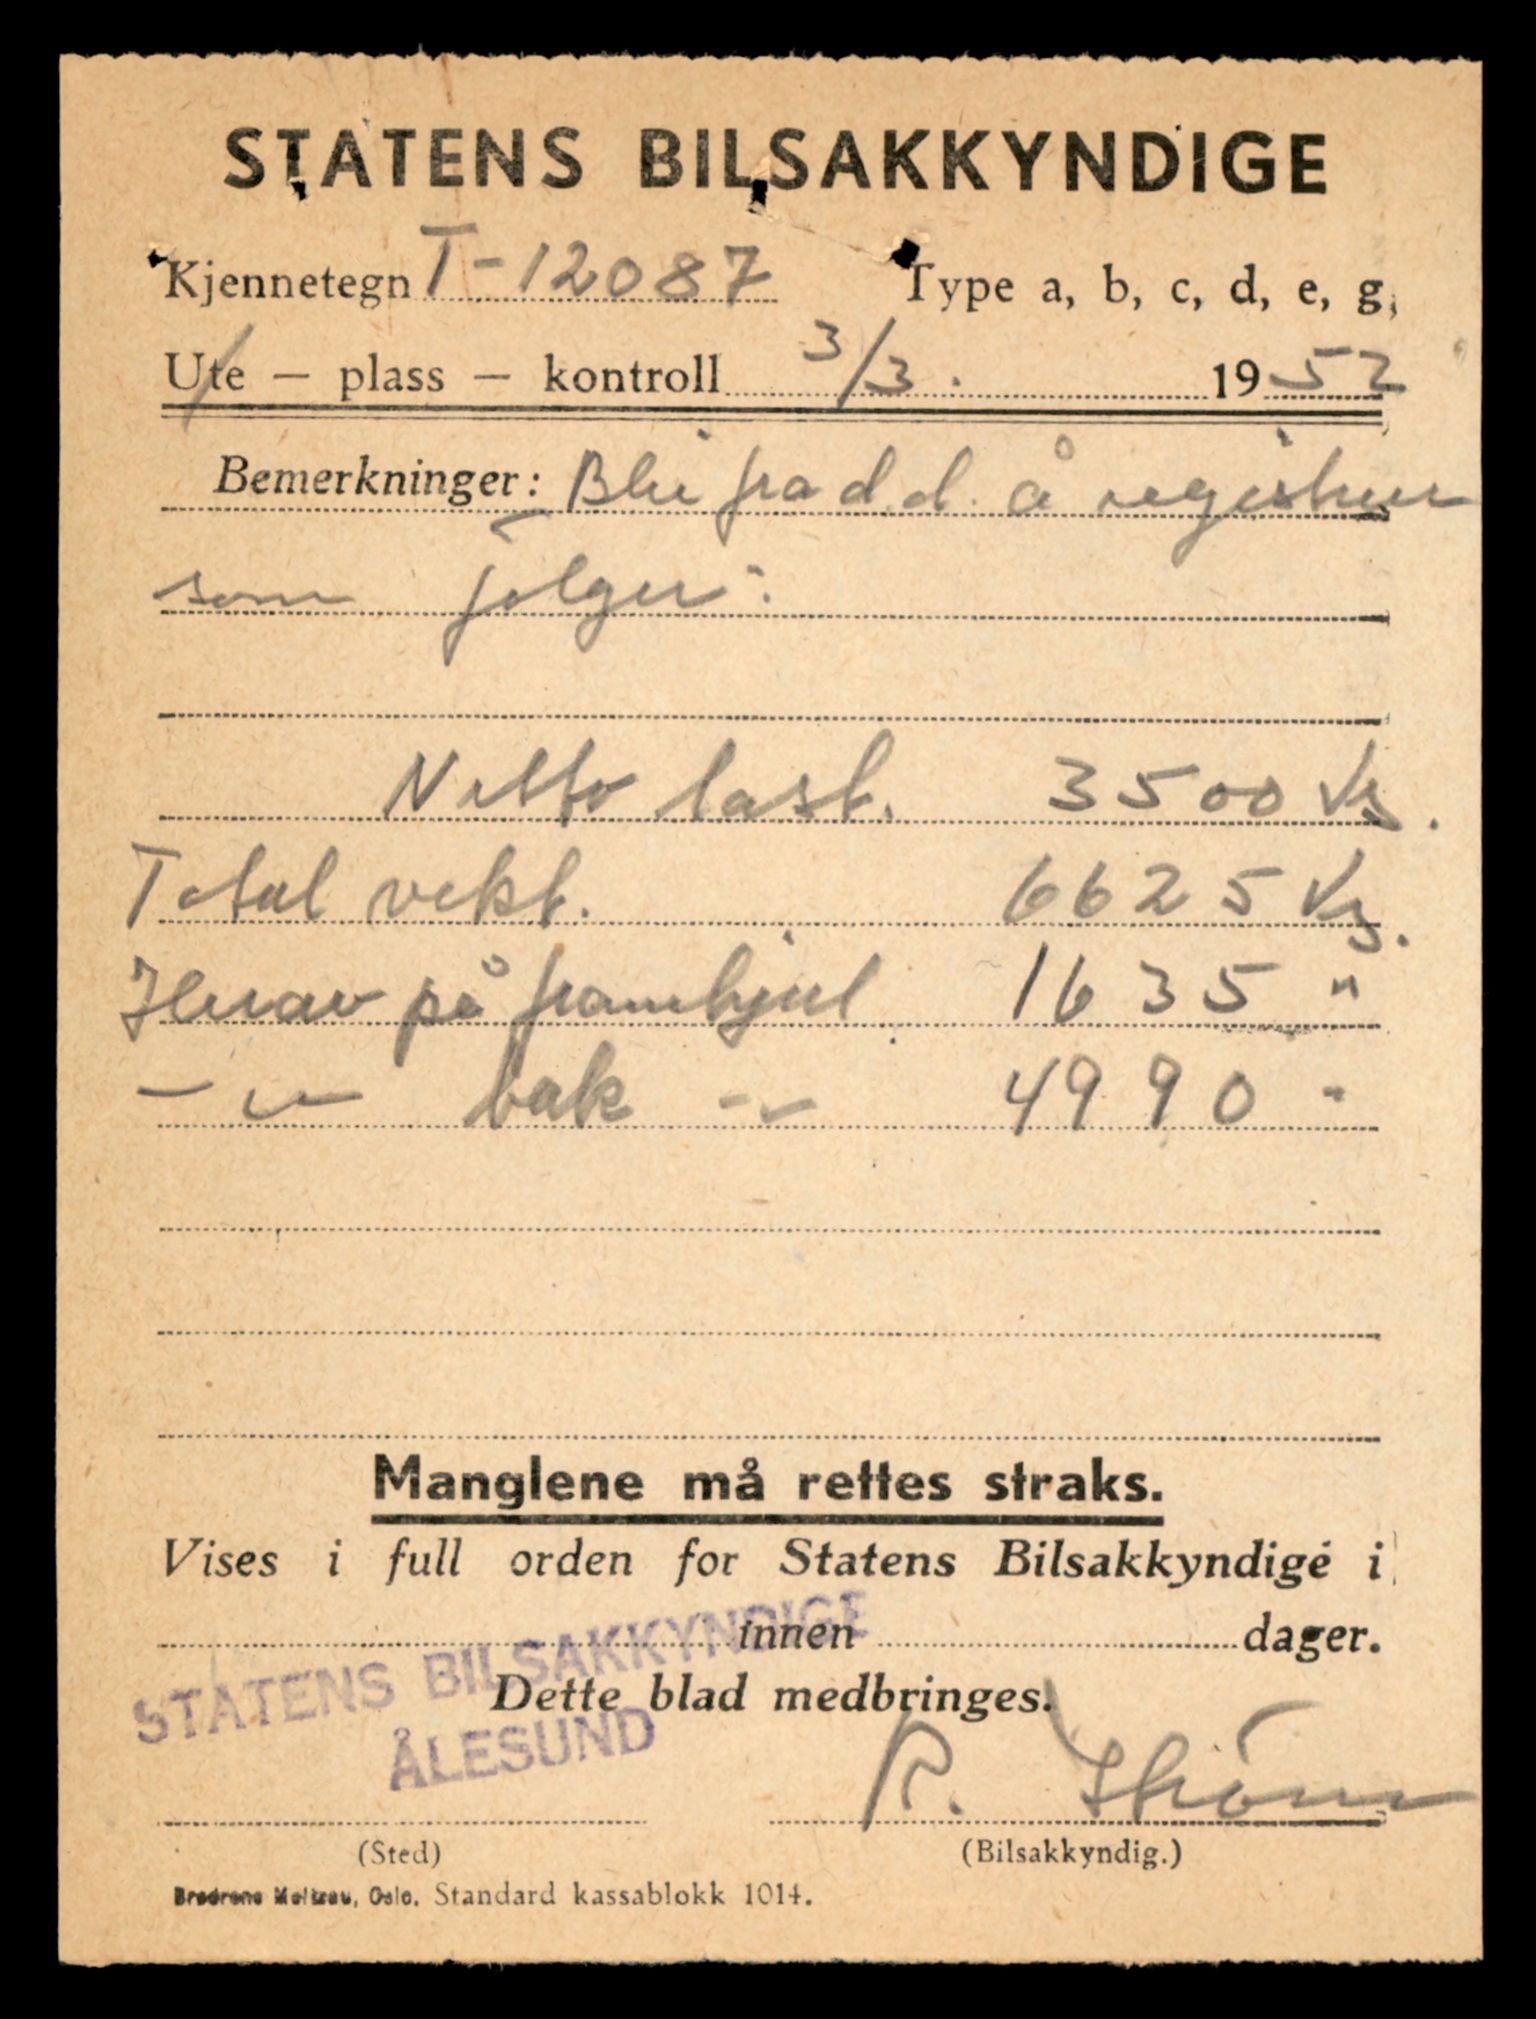 STATENS BILSAKKYNDIGE
Kjennetegn T-12087 Type a, b, c, d, e, g,
Ute — plass — kontroll 3/3. 1952
Bemerkninger: Blir fra d.d. å registrere
som følger:
Netto last. 3500 kg.
Total vekt. 6625 kg.
Herav på framhjul 1635 "
— " — bak — " — 4990 "
Manglene må rettes straks.
Vises i full orden for Statens Bilsakkyndige i
innen dager.
Dette blad medbringes.
STATENS BILSAKKYNDIGE
ÅLESUND
R.
(Sted) (Bilsakkyndig.)
Brødrene Oslo. Standard kassablokk 1014.